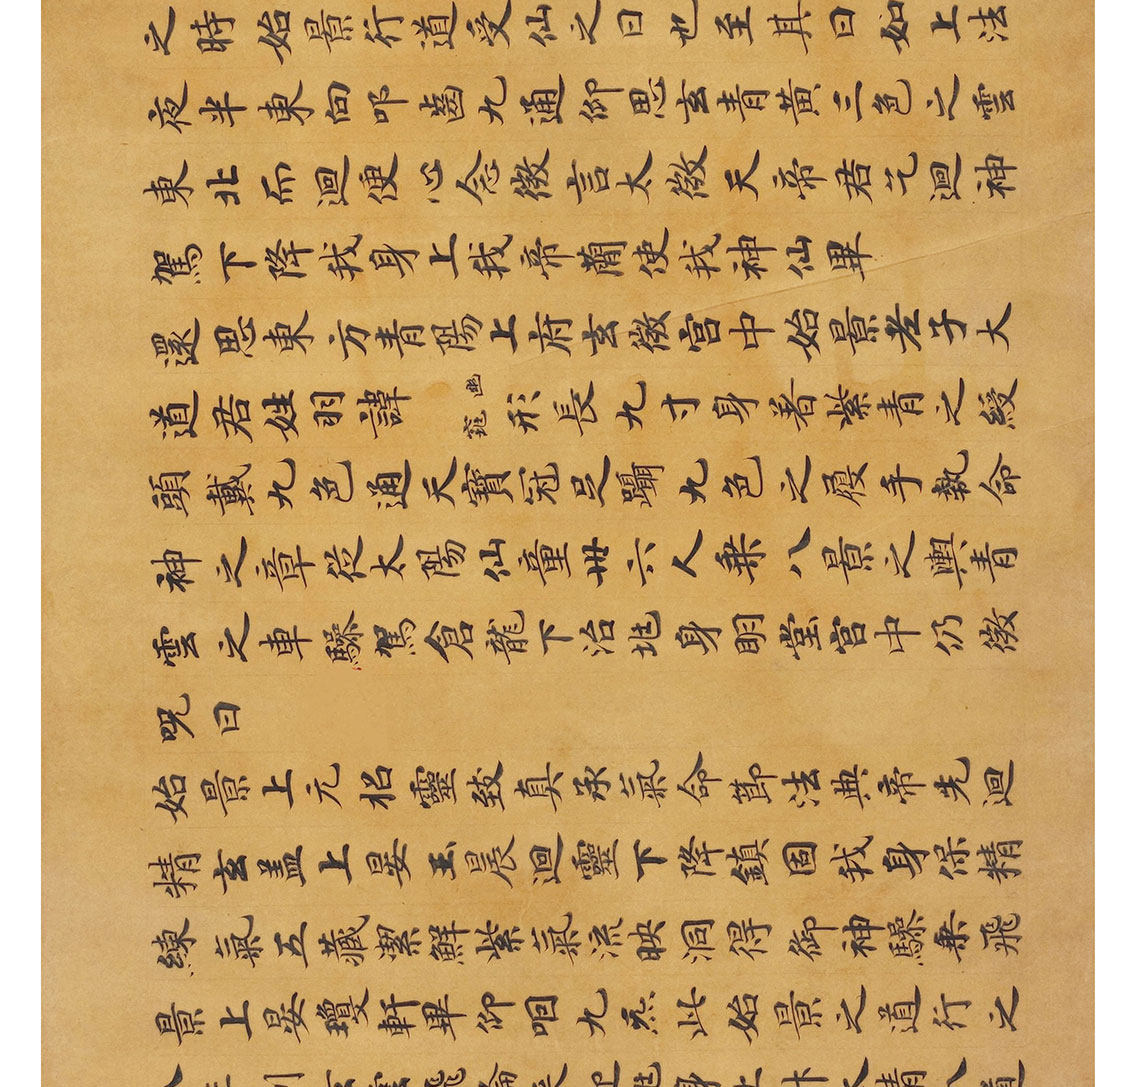 之時始景行道受仙之日也至其日如上法
夜半東向叩齒九通仰思玄青黃三色之雲
東北而迴便心念微言太微天帝君乞迴神
駕下降我身上我帝簡使我神仙畢
還思東方青陽上府玄微宮中始景老子大
道君姓羽諱形長九寸身著紫青之綬
頭戴九色通天寶冠足躡九色之履手執命
神之章從太陽仙童卅六人乘八景之輿青
雲之車驂駕倉龍下治兆身明堂宮中仍微
呪曰
始景上元招靈致真承氣命節法典帝先迴
精玄蓋上晏玉晨迴靈下降鎮固我身保精
練氣五藏潔鮮紫氣流映洞得御神驂乘飛
景上晏瓊軒畢仰咽九炁此始景之道行之